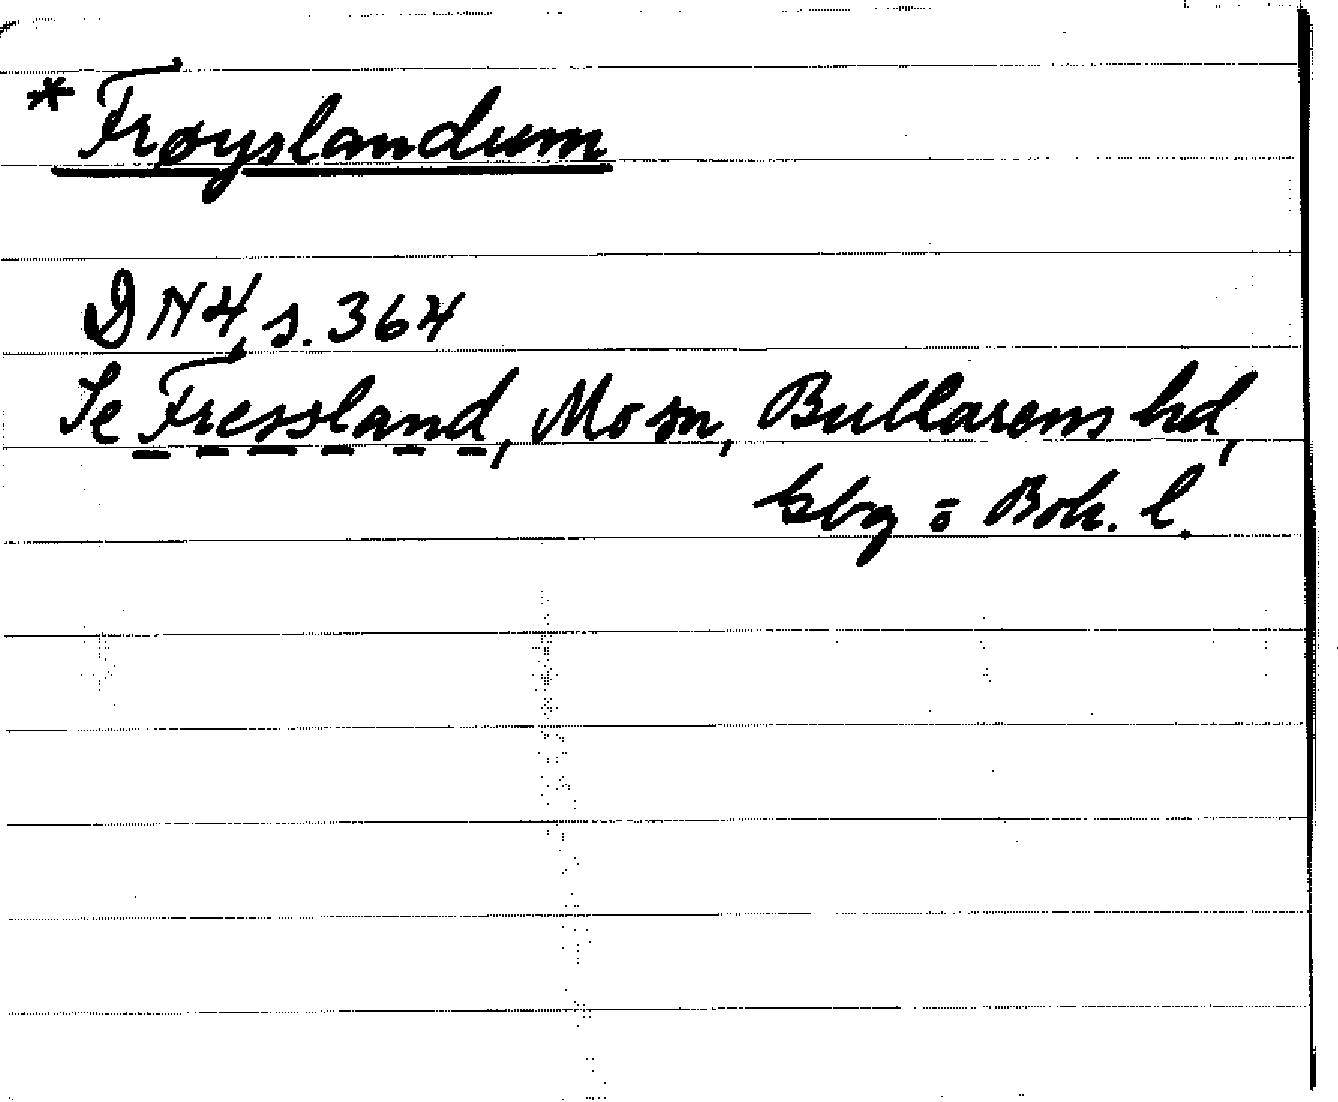 * Frøyslandum
DN 4, s. 364
Se Fressland, Mo sn, Bullarens hd,
Gbg o Boh. l.